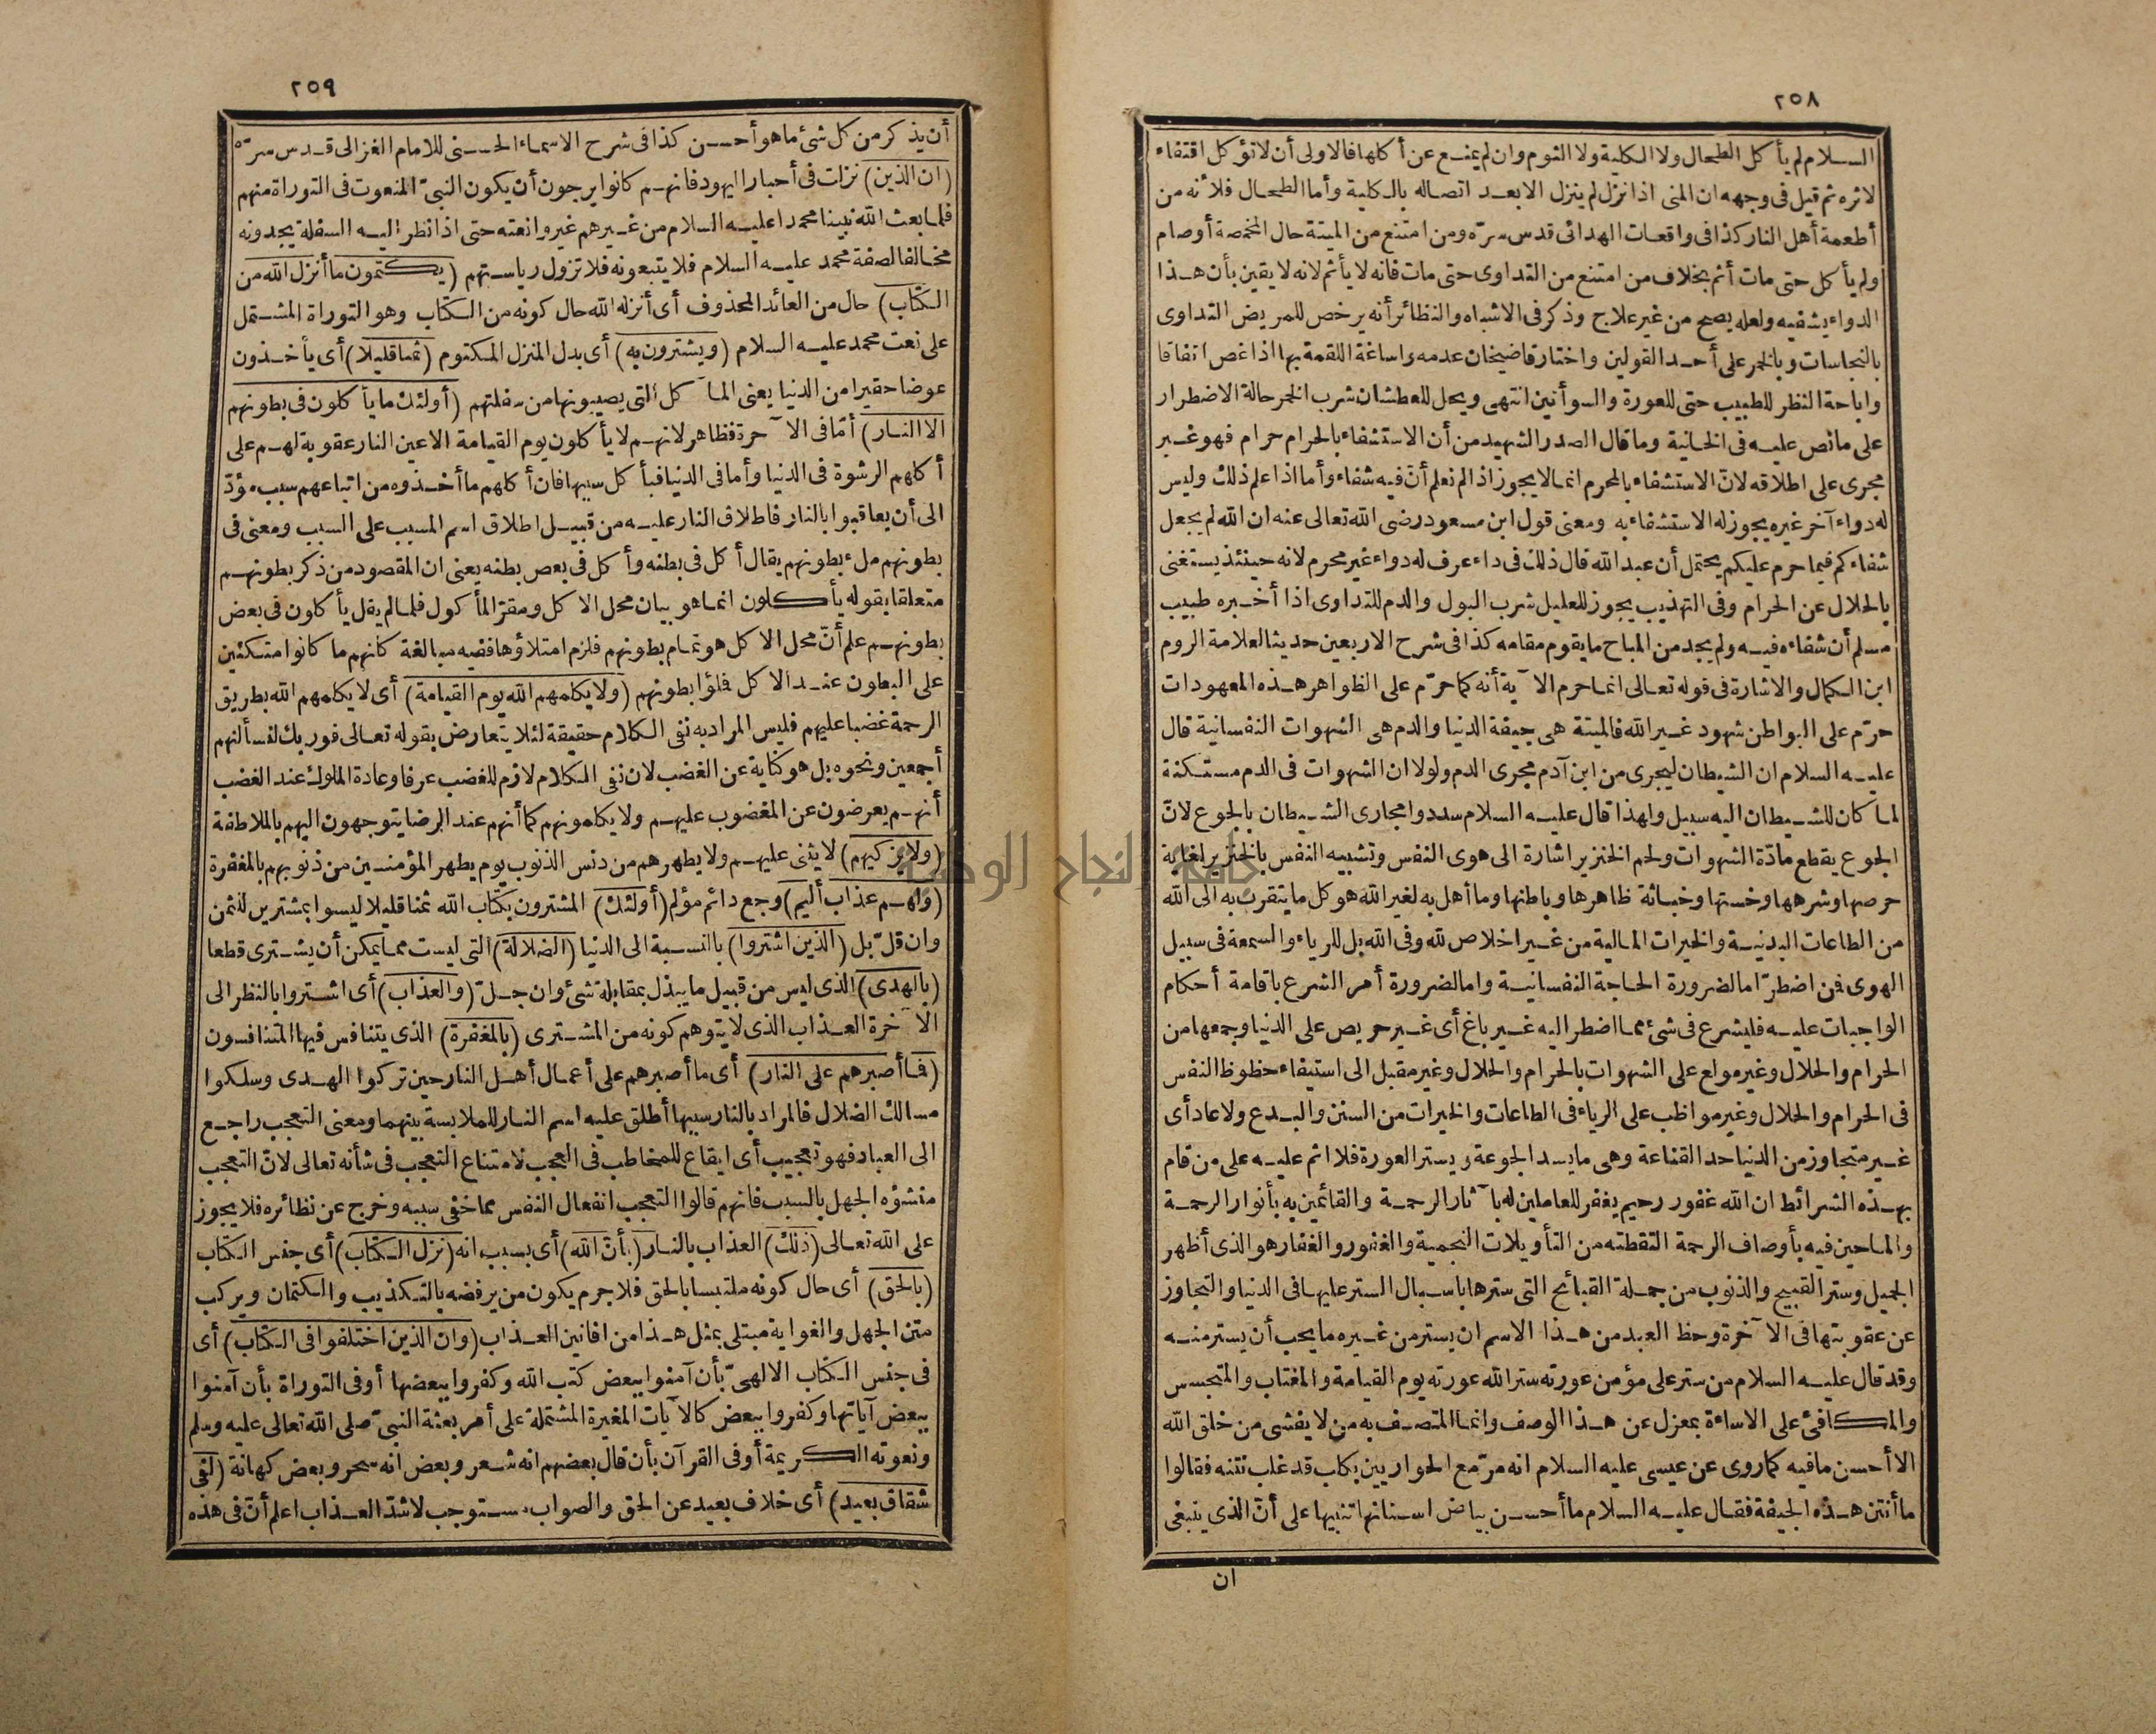 ٢٥٨
السلام لم يأكل الطحال ولا الكلية ولا الثوم وان لم يمنع عن أكلها فالاولى أن لا تؤكل اقتفاء
لاثره ثم قيل فى وجهه ان المنى اذا نزل لم ينزل الا بعد اتصاله بالكلية وأما الطحال فلانه من
أطعمة أهل النار كذا فى واقعات الهدائى قدس سره ومن امتنع من الميتة حال المخمصة أو صام
ولم يأكل حتى مات أثم بخلاف من امتنع من التداوى حتى مات فانه لا يأثم لانه لا يقين بأن هذا
الدواء يشفيه ولعله يصح من غير علاج وذكر فى الاشباه والنظائر أنه يرخص للمريض التداوى
بالنجاسات وبالخمر على أحد القولين واختار قاضيخان عدمه واساغة اللقمة بها اذا غص اتفاقا
واباحة النظر للطبيب حتى للعورة والسوأتين انتهى ويحل للعطشان شرب الخمر حالة الاضطرار
على ما نص عليه فى الخانية وما قال الصدر الشهيد من أن الاستشفاء بالحرام حرام فهو غير
مجرى على اطلاقه لانّ الاستشفاء بالمحرم انما لا يجوز اذا لم نعلم أنّ فيه شفاء وأما اذا علم ذلك وليس
له دواء آخر غيره يجوز له الاستشفاء به ومعنى قول ابن مسعود رضى الله تعالى عنه ان الله لم يجعل
شفاءكم فيما حرم عليكم يحتمل أن عبد الله قال ذلك فى داء عرف له دواء غير محرم لانه حينئذ يستغنى
بالحلال عن الحرام وفى التهذيب يجوز للعليل شرب البول والدم للتداوى اذا أخبره طبيب
مسلم أن شفاءه فيه ولم يجد من المباح ما يقوم مقامه كذا فى شرح الاربعين حديثا لعلامة الروم
ابن الكمال والاشارة فى قوله تعالى انما حرم الآية أنه كما حرّم على الظواهر هذه المعهودات
حرّم على البواطن شهود غير الله فالميتة هى جيفة الدنيا والدم هى الشهوات النفسانية قال
عليه السلام ان الشيطان ليجرى من ابن آدم مجرى الدم ولولا ان الشهوات فى الدم مستكنة
لما كان للشيطان اليه سبيل ولهذا قال عليه السلام سددوا مجارى الشيطان بالجوع لانّ
الجوع يقطع مادّة الشهوات ولحم الخنزير اشارة الى هوى النفس وتشبيه النفس بالخنزير لغاية
حرصها وشرهها وخستها وخباثة ظاهرها وباطنها وما أهل به لغير الله هو كل ما يتقرب به الى الله
من الطاعات البدنية والخيرات المالية من غير اخلاص لله وفى الله بل للرياء والسمعة فى سبيل
الهوى فمن اضطرّ اما لضرورة الحاجة النفسانية واما لضرورة أمر الشرع باقامة أحكام
الواجبات عليه فليشرع فى شئ مما اضطر اليه غير باغ أى غير حريص على الدنيا وجمعها من
الحرام والحلال وغير مولع على الشهوات بالحرام والحلال وغير مقبل الى استيفاء حظوظ النفس
فى الحرام والحلال وغير مواظب على الرياء فى الطاعات والخيرات من السنن والبدع ولا عاد أى
غير متجاوز من الدنيا حد القناعة وهى ما يسد الجوعة ويستر العورة فلا اثم عليه على من قام
بهذه الشرائط ان الله غفور رحيم يغفر للعاملين له بآثار الرحمة والقائمين به بأنوار الرحمة
والماحين فيه بأوصاف الرحمة التقطته من التأويلات النجمية والغفور والغفار هو الذى أظهر
الجميل وستر القبيح والذنوب من جملة القبائح التى سترها باسبال الستر عليها فى الدنيا والتجاوز
عن عقوبتها فى الآخرة وحظ العبد من هذا الاسم ان يستر من غيره ما يحب أن يستر منه
وقد قال عليه السلام من ستر على مؤمن عورته ستر الله عورته يوم القيامة والمغتاب والمتجسس
والمكافئ على الاساءة بمعزل عن هذا الوصف وانما المتصف به من لا يفشى من خلق الله
الا أحسن ما فيه كما روى عن عيسى عليه السلام انه مرّ مع الحواريين بكلب قد غلب نتنه فقالوا
ما أنتن هذه الجيفة فقال عليه السلام ما أحسن بياض اسنانها تنبيها على أنّ الذى ينبغى
ان
٢٥٩
أن يذكر من كل شئ ما هو أحسن كذا فى شرح الاسماء الحسنى للامام الغزالى قدس سرّه
(ان الذين) نزلت فى أحبار اليهود فانهم كانوا يرجون أن يكون النبىّ المنعوت فى التوراة منهم
فلما بعث الله نبينا محمدا عليه السلام من غيرهم غيروا نعته حتى اذا نظر اليه السفلة يجدونه
مخالفا لصفة محمد عليه السلام فلا يتبعونه فلا تزول رياستهم (يكتمون ما أنزل الله من
الكتاب) حال من العائد المحذوف أى أنزله الله حال كونه من الكتاب وهو التوراة المشتمل
على نعت محمد عليه السلام (ويشترون به) أى بدل المنزل المكتوم (ثمنا قليلا) أى يأخذون
عوضا حقيرا من الدنيا يعنى المآكل التى يصيبونها من سفلتهم (أولئك ما يأكلون فى بطونهم
الا النار) أمّا فى الآخرة فظاهر لانهم لا يأكلون يوم القيامة الا عين النار عقوبة لهم على
أكلهم الرشوة فى الدنيا وأما فى الدنيا فبأكل سببها فان أكلهم ما أخذوه من اتباعهم سبب مؤدّ
الى أن يعاقبوا بالنار فاطلاق النار عليه من قبيل اطلاق اسم المسبب على السبب ومعنى فى
بطونهم ملء بطونهم يقال أكل فى بطنه وأكل فى بعض بطنه يعنى ان المقصود من ذكر بطونهم
متعلقا بقوله يأكلون انما هو بيان محل الاكل ومقرّ المأكول فلما لم يقل يأكلون فى بعض
بطونهم علم أنّ محل الاكل هو تمام بطونهم فلزم امتلاؤها ففيه مبالغة كانهم ما كانوا متكئين
على البطون عند الاكل فملؤا بطونهم (ولا يكلمهم الله يوم القيامة) أى لا يكلمهم الله بطريق
الرحمة غضبا عليهم فليس المراد به نفى الكلام حقيقة لئلا يتعارض بقوله تعالى فوربك لنسألنهم
أجمعين ونحوه بل هو كناية عن الغضب لان نفى الكلام لازم للغضب عرفا وعادة الملوك عند الغضب
أنهم يعرضون عن المغضوب عليهم ولا يكلمونهم كما أنهم عند الرضا يتوجهون اليهم بالملاطفة
(ولا يزكيهم) لا يثنى عليهم ولا يطهرهم من دنس الذنوب يوم يطهر المؤمنين من ذنوبهم بالمغفرة
(ولهم عذاب أليم) وجع دائم مؤلم (أولئك) المشترون بكتاب الله ثمنا قليلا ليسوا بمشترين للثمن
وان قلّ بل (الذين اشتروا) بالنسبة الى الدنيا (الضلالة) التى ليست مما يمكن أن يشترى قطعا
(بالهدى) الذى ليس من قبيل ما يبذل بمقابلة شئ وان جلّ (والعذاب) أى اشتروا بالنظر الى
الآخرة العذاب الذى لا يتوهم كونه من المشترى (بالمغفرة) الذى يتنافس فيها المتنافسون
(فما أصبرهم على النار) أى ما أصبرهم على أعمال أهل النار حين تركوا الهدى وسلكوا
مسالك الضلال فالمراد بالنار سببها أطلق عليه اسم النار للملابسة بينهما ومعنى التعجب راجع
الى العباد فهو تعجيب أى ايقاع للمخاطب فى العجب لامتناع التعجب فى شأنه تعالى لانّ التعجب
منشؤه الجهل بالسبب فانهم قالوا التعجب انفعال النفس مما خفى سببه وخرج عن نظائره فلا يجوز
على الله تعالى (ذلك) العذاب بالنار (بأنّ الله) أى بسبب انه (نزل الكتاب) أى جنس الكتاب
(بالحق) أى حال كونه ملتبسا بالحق فلا جرم يكون من يرفضه بالتكذيب والكتمان ويركب
متن الجهل والغواية مبتلى بمثل هذا من افانين العذاب (وان الذين اختلفوا فى الكتاب) أى
فى جنس الكتاب الالهىّ بأن آمنوا ببعض كتب الله وكفروا ببعضها أو فى التوراة بأن آمنوا
ببعض آياتها وكفروا ببعض كالآيات المغيرة المشتملة على أمر بعثة النبىّ صلى الله تعالى عليه وسلم
ونعوته الكريمة أو فى القرآن بأن قال بعضهم انه شعر وبعض انه سحر وبعض كهانة (لفى
شقاق بعيد) أى خلاف بعيد عن الحق والصواب مستوجب لاشدّ العذاب اعلم أنّ فى هذه
جامعة النجاح الوطنية